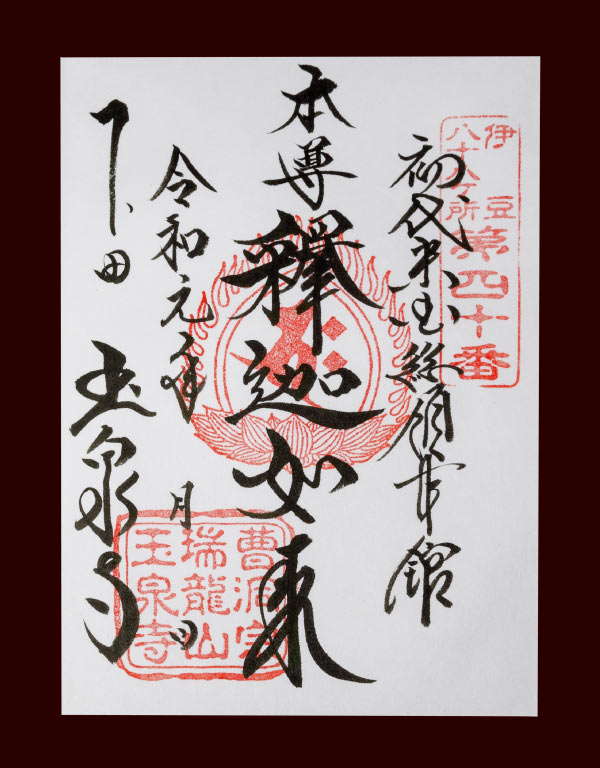 伊豆
八十八ヶ所
第四十番
初代米国総領事館
本尊
釋迦如来
令和元年 月 日
下田 玉泉寺
曹洞宗
瑞龍山
玉泉寺